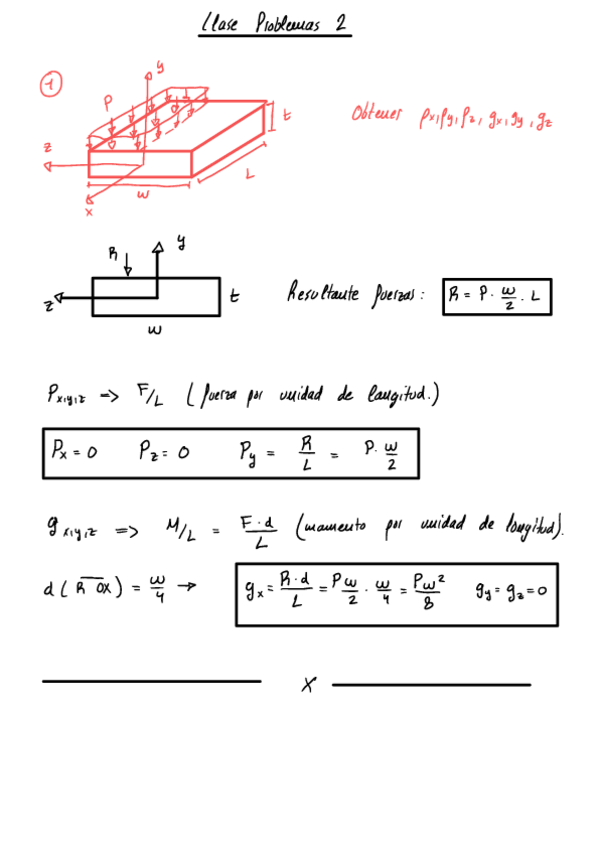 Clase Problemas 2
1
y
P
t
z
L
w
x
Obtener px, py, pz, qx, qy, qz
y
R
z
t
w
Resultante fuerzas: R = P · w/2 · L
Px,y,z => F/L (fuerza por unidad de longitud.)
Px = 0 Pz = 0 Py = R/L = P · w/2
qx,y,z => M/L = F·d/L (momento por unidad de longitud).
d (R̅ 0̅X̅) = w/4 → qx = R·d/L = Pw/2 · w/4 = Pw²/8 qy = qz = 0
X